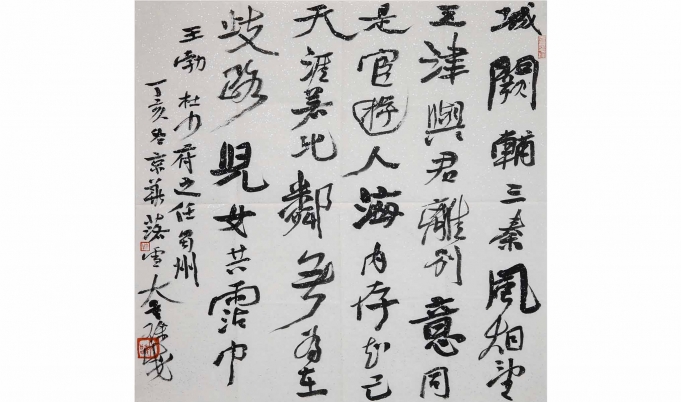 城闕輔三秦風烟望
五津與君離別意同
是宦遊人海内存知己
天涯若比鄰無為在
歧路兒女共霑巾
王勃 杜少府之任蜀州
丁亥冬京華落雪